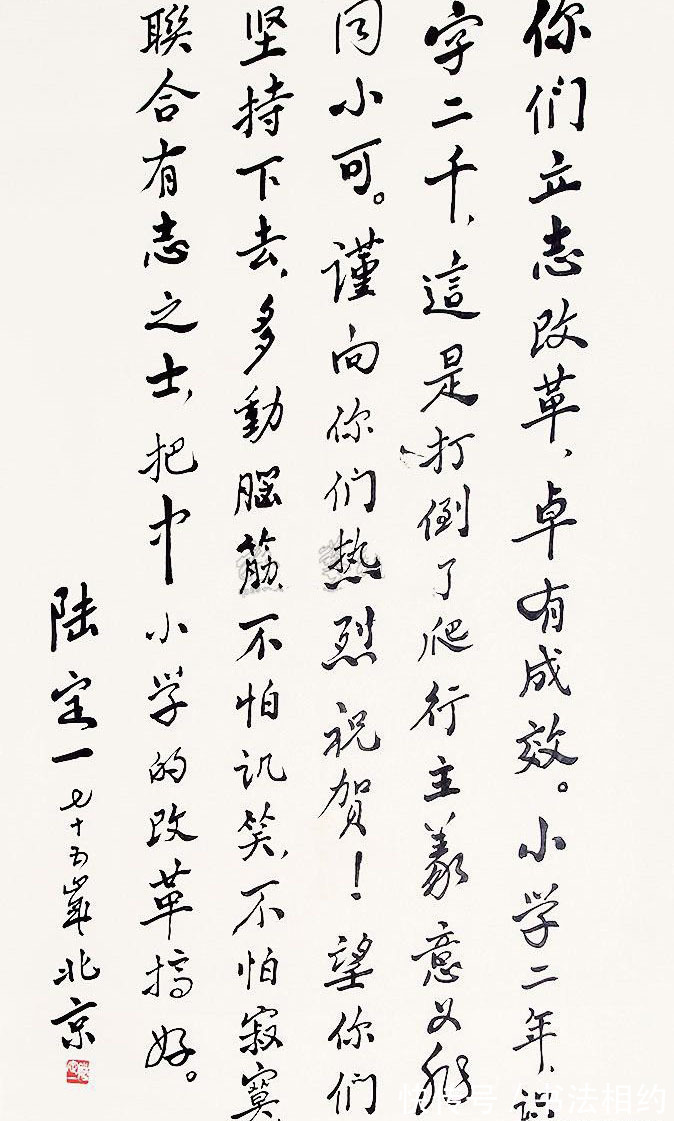 你们立志改革，卓有成效。小学二年，识
字二千，這是打倒了爬行主義，意义非
同小可。謹向你们热烈祝贺！望你们
坚持下去，多動腦筋，不怕讥笑，不怕寂寞，
聯合有志之士，把中小学的改革搞好。
陆定一 七十五歲 北京